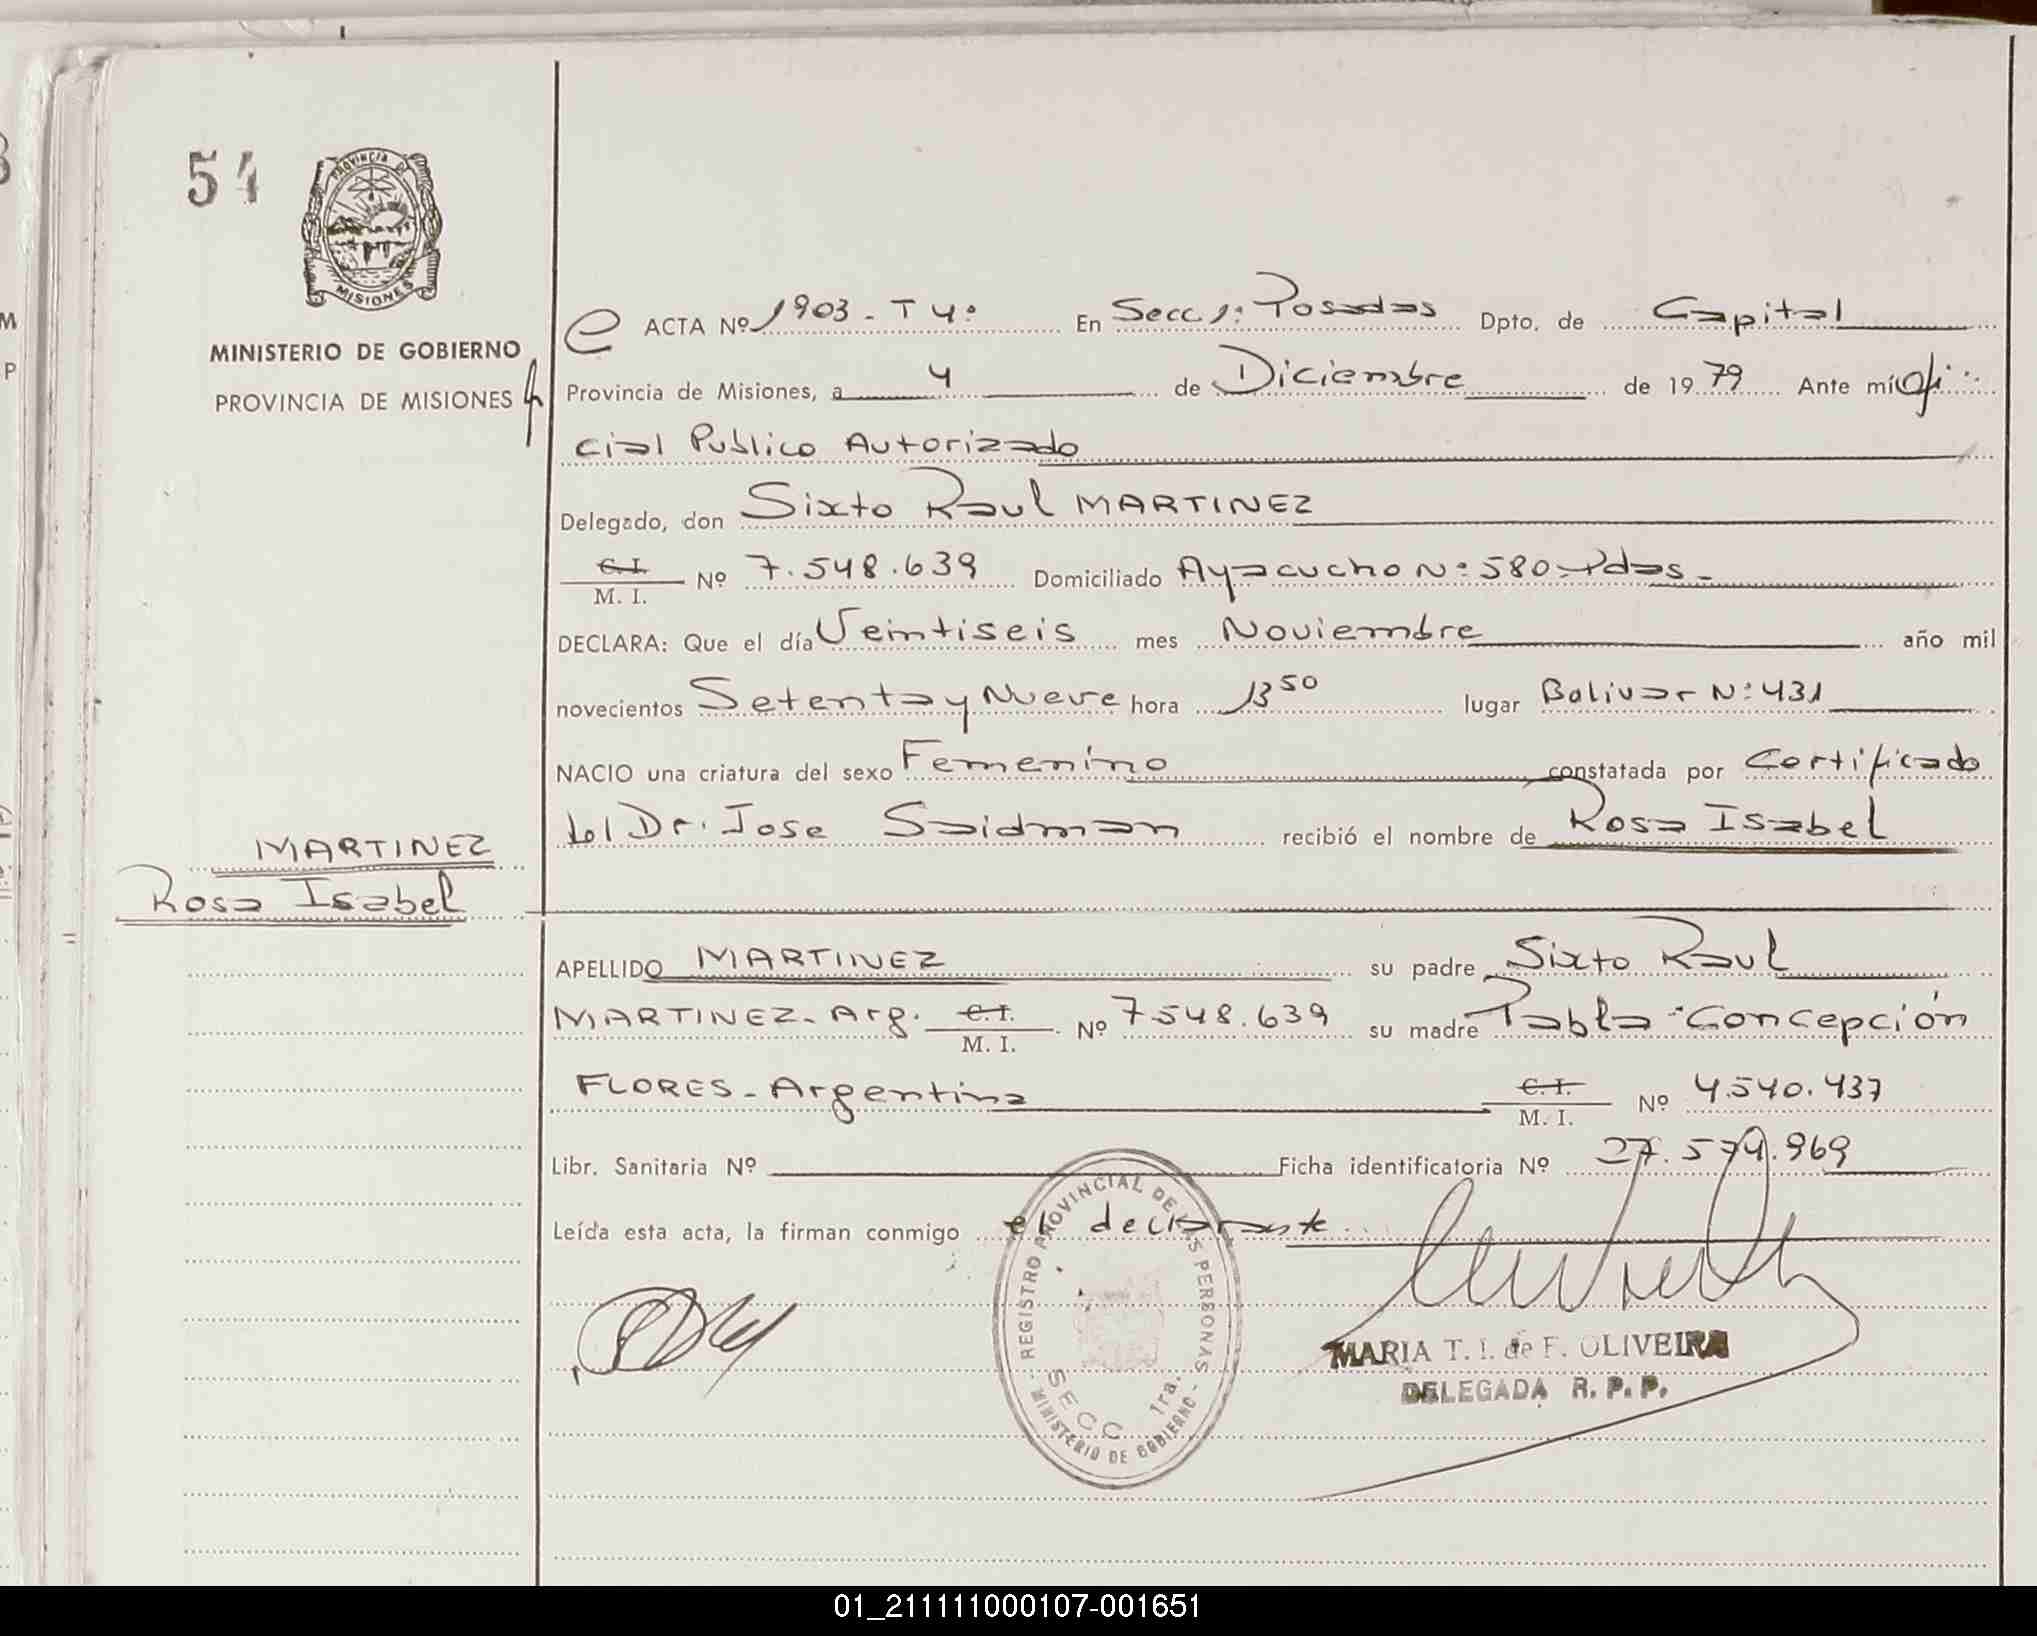 54
PROVINCIA DE
MISIONES
MINISTERIO DE GOBIERNO
PROVINCIA DE MISIONES
MARTINEZ
Rosa Isabel
ACTA Nº 1903 - T 4º En Secc 1ª Posadas Dpto. de Capital
Provincia de Misiones, a 4 de Diciembre de 1979 Ante mí Ofi
cial Publico Autorizado
Delegado, don Sixto Raul MARTINEZ
C.I. M. I. Nº 7.548.639 Domiciliado Ayacucho Nº 580 - Pdas -
DECLARA: Que el día Veintiseis mes Noviembre año mil
novecientos Setenta y Nueve hora 13 50 lugar Bolivar Nº 431
NACIO una criatura del sexo Femenino constatada por Certificado
del Dr. Jose Saidman recibió el nombre de Rosa Isabel
APELLIDO MARTINEZ su padre Sixto Raul
MARTINEZ - Arg. C.I. M. I. Nº 7548.639 su madre Pabla Concepción
FLORES - Argentina C.I. M. I. Nº 4.540.437
Libr. Sanitaria Nº Ficha identificatoria Nº 27.574.969
Leída esta acta, la firman conmigo el declarante
REGISTRO PROVINCIAL DE LAS PERSONAS
SECC 1ra.
MINISTERIO DE GOBIERNO
MARIA T. I. de F. OLIVEIRA
DELEGADA R. P. P.
01_211111000107-001651